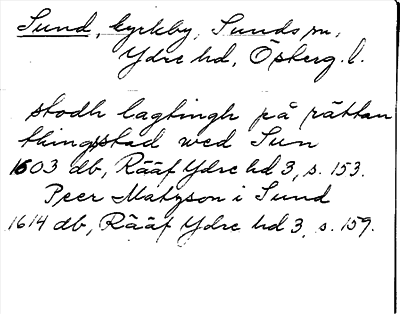 Sund, kyrkby, Sunds sn,
Ydre hd, Österg. l.
stodh lagtingh på rättan
thingsstad wed Sun
1603 db, Rääf Ydre hd 3, s. 153.
Peer Matzson i Sund
1614 db, Rääf Ydre hd 3, s. 159.